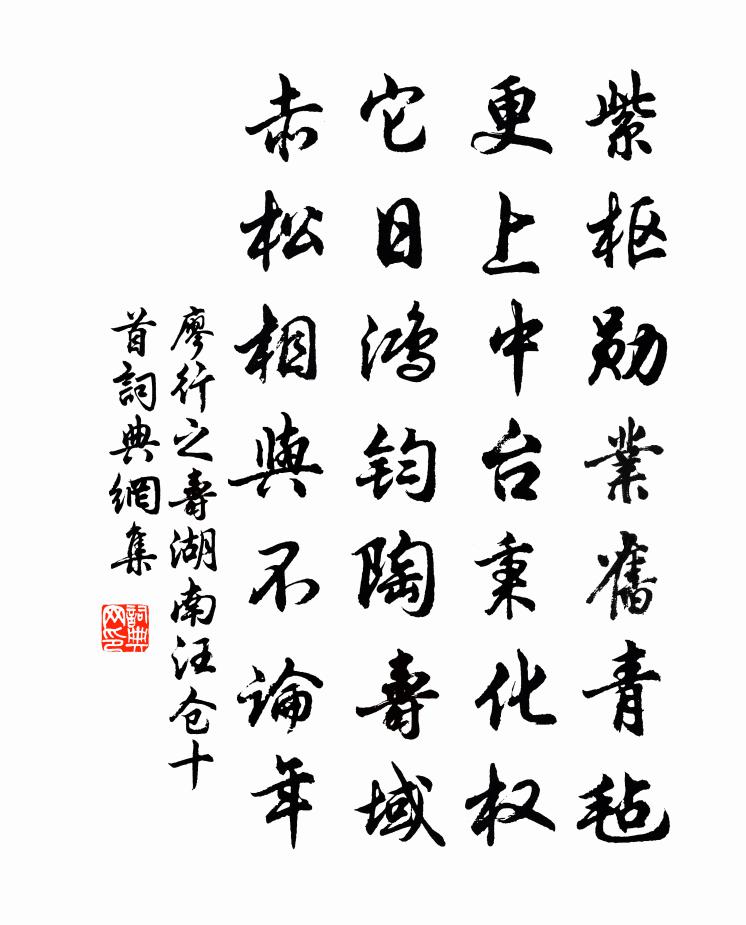 紫枢勋業舊青毡
更上中台秉化权
它日鴻钧陶壽域
赤松相與不論年
廖行之壽湖南汪仓十
首詞典網集
詞典网印